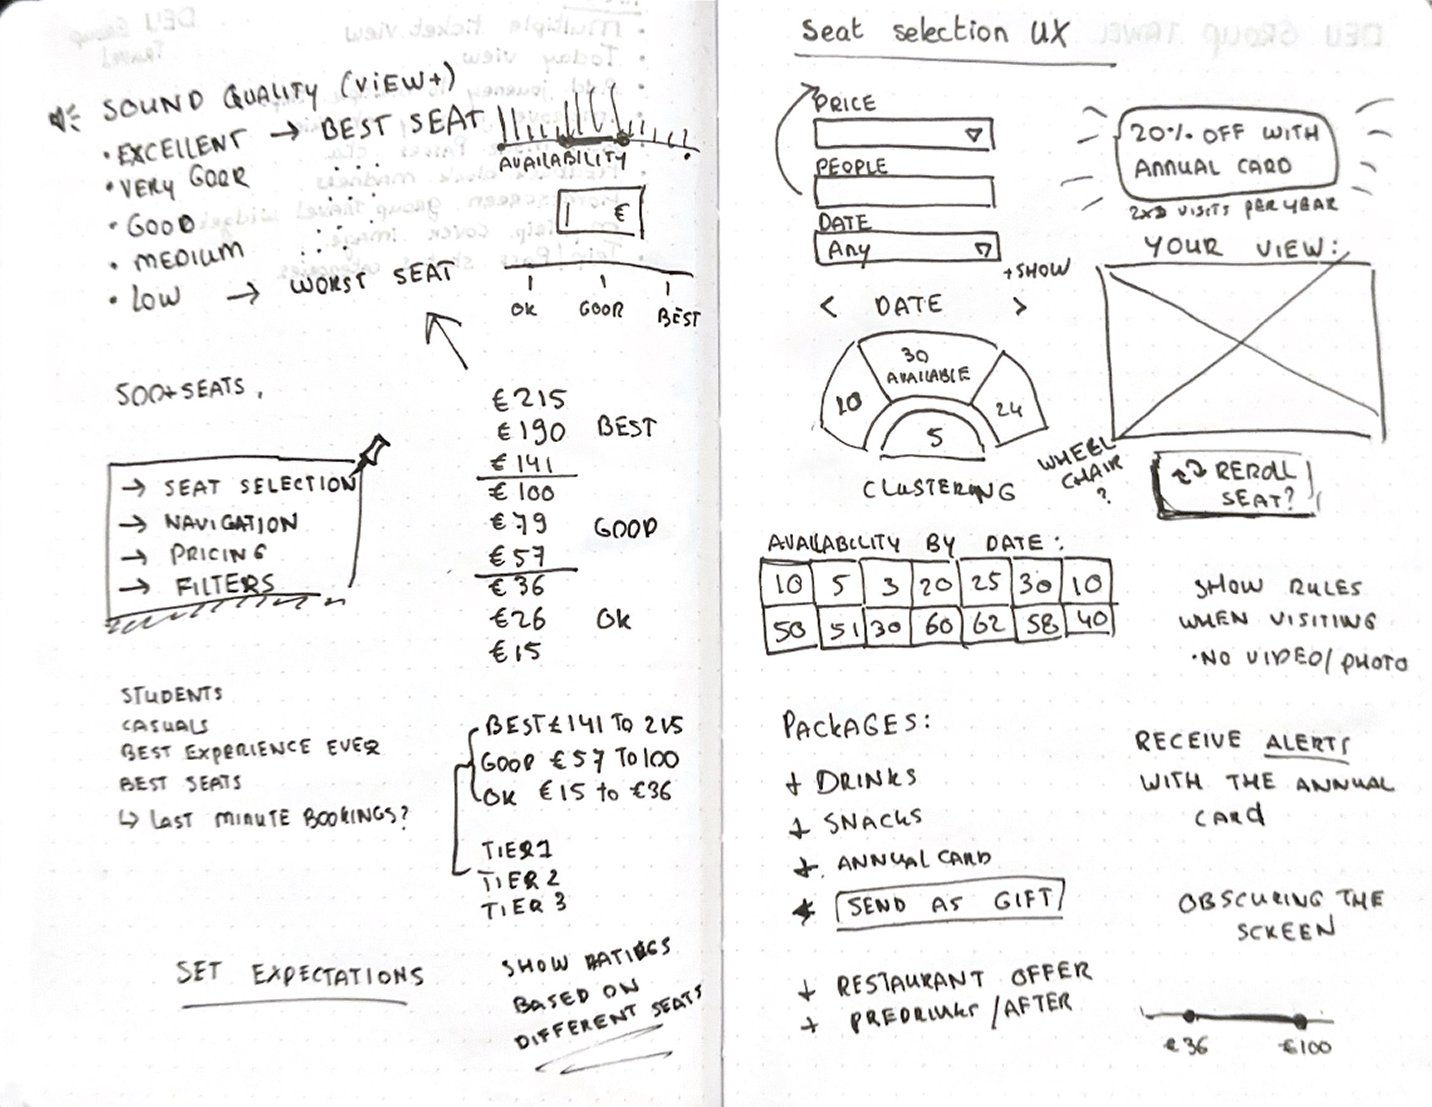 SOUND QUALITY (VIEW+)
• EXCELLENT → BEST SEAT
• VERY GOOR
• GOOD
• MEDIUM
• LOW → WORST SEAT
AVAILABILITY
€
OK GOOR BEST
500+ SEATS.
→ SEAT SELECTION
→ NAVIGATION
→ PRICING
→ FILTERS
€215
€190 BEST
€141
€100
€79 GOOD
€57
€36
€26 OK
€15
STUDENTS
CASUALS
BEST EXPERIENCE EVER
BEST SEATS
↳ LAST MINUTE BOOKINGS?
BEST € 141 TO 215
GOOD €57 TO 100
OK €15 to €36
TIER 1
TIER 2
TIER 3
SET EXPECTATIONS
SHOW RATINGS
BASED ON
DIFFERENT SEATS
Seat selection UX
PRICE
PEOPLE
DATE
Any
+SHOW
< DATE >
30
AVAILABLE
24
5
CLUSTERING
20% OFF WITH
ANNUAL CARD
VISITS PER YEAR
YOUR VIEW:
WHEEL
CHAIR
?
REROLL
SEAT?
AVAILABILITY BY DATE:
10 5 3 20 25 30 10
50 51 30 60 62 58 40
SHOW RULES
WHEN VISITING
• NO VIDEO/PHOTO
PACKAGES:
+ DRINKS
+ SNACKS
+ ANNUAL CARD
SEND AS GIFT
+ RESTAURANT OFFER
+ PREDRINKS / AFTER
RECEIVE ALERTS
WITH THE ANNUAL
CARd
OBSCURING THE
SCREEN
€36 €100